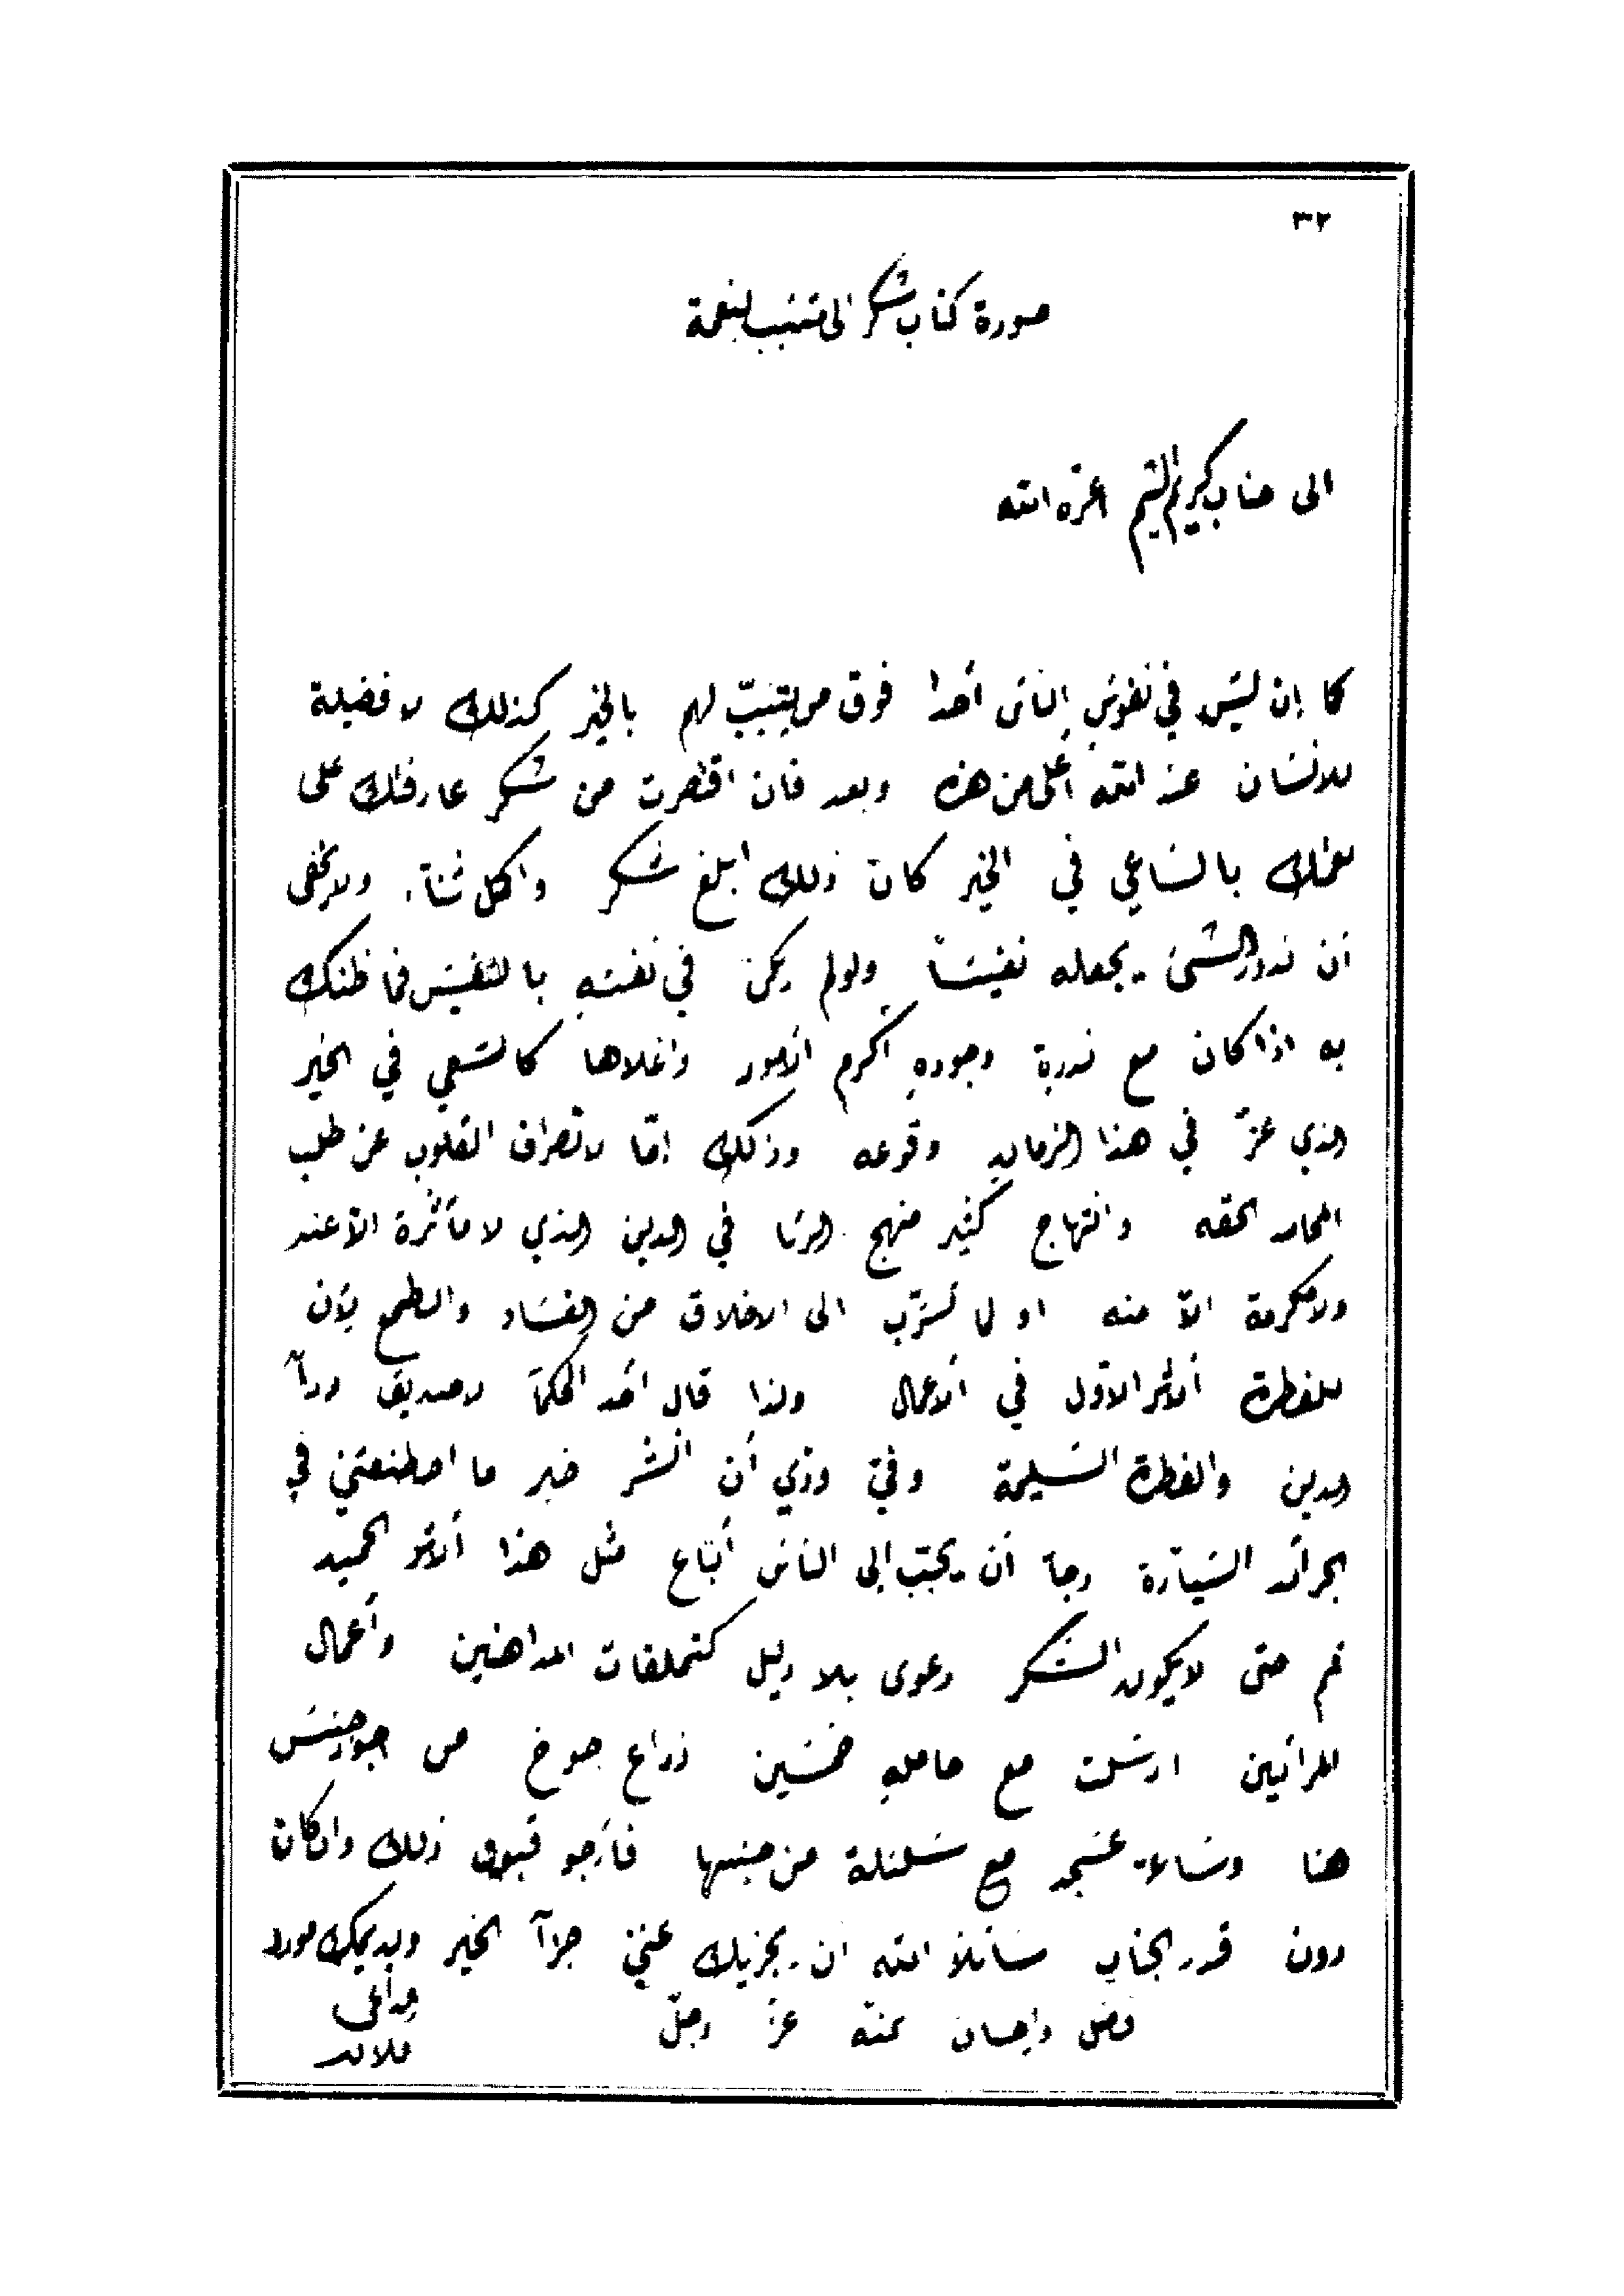 ٣٢
صورة كتاب شكر الى متسبب بنعمة
الى جناب كريم الشيم اعزه الله
كما إن ليس في نفوس الناس أحدا فوق من يتسبّب لهم بالخير كذلك لا فضيلة
للانسان عند الله أعلى من هذه وبعد فان اقتصرت من شكر عارفتك على
نعتك بالساعي في الخير كان ذلك ابلغ شكر واكمل ثناء ولا يخفى
أن ندور الشئ يجعله نفيساً ولو لم يكن في نفسه بالنفيس فما ظنك
به اذا كان مع ندرة وجوده اكرم الأمور واغلاها كالسعي في الخير
الذي عزّ في هذا الزمان وقوعه وذلك امّا لانصراف القلوب عن طلب
المحامد الحقه وانتهاج كثير منهج الريا في الدين الذي لا مأثرة الّا عنده
ولا مكرمة الّا منه او لما تسرّب الى الاخلاق من الفساد والطمع بأن
للفطرة ألأثر الاوّل في ألأعمال ولذا قال أحد الحكمآ لا صديق ورآ
الدين والفطرة السليمة وفي ودّي أن انشر خبر ما اصطنعتني في
الجرائد السيّارة رجآ أن يحبّب إلى الناس أتباع مثل هذا ألأثر الحميد
ثم حتى لا يكون الشكر دعوى بلا دليل كتملقات المداهنين وأعمال
المرائين ارسلت مع حامله خمسين ذراع جوخ من اجود جنس
هنا وشالا عسجد مع سلسلة من جنسها فأرجو قبول ذلك وان كان
دون قدر الجناب سائلاً الله ان يجزيك عني جزآ الخير ويديمك مورد
فضل واحسان بمنّه عزّ وجلّ
الداعي
فلان